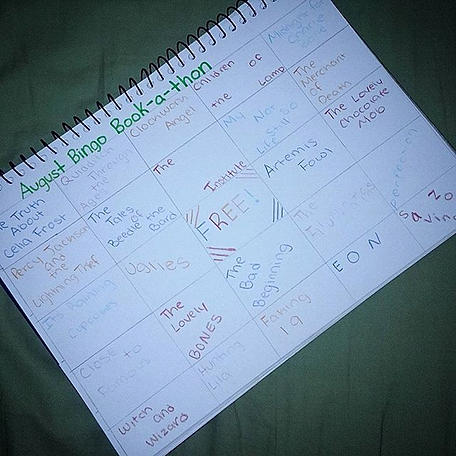 August Bingo Book-a-thon
Truth
About
Celia Frost
Quidditch
Through
the
Ages
Clockwork
Angel
Children of
the Lamp
Midnight for
Charlie
Bone
Percy Jackson
and
the
Lightning Thief
The
Tales
Beedle of the
Bard
The
Institute
My Not
So
Still
Life
The
Merchant
of
Death
It's Raining
Cupcakes
Uglies
FREE!
Artemis
Fowl
The Lovely
Chocolate
Mob
Close to
Famous
The
Lovely
BONES
The
Bad
Beginning
The
Perfection
Witch
and
Wizard
Hunting
Lila
Falling
19
EON
Saving
Zo